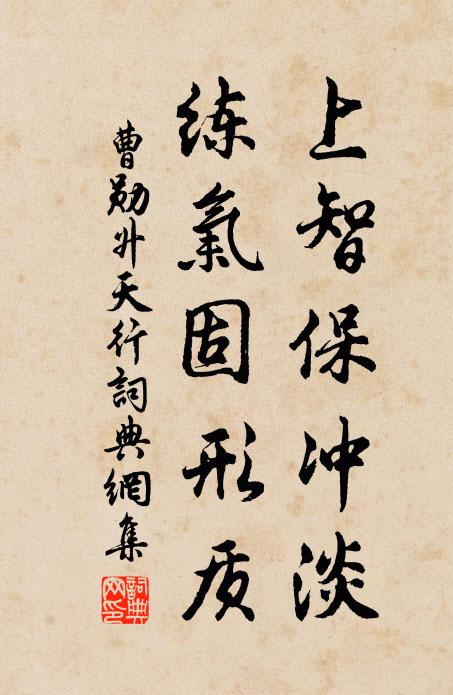 上智保冲淡
练氣固形质
曹勋升天行詞典網集
詞典網印